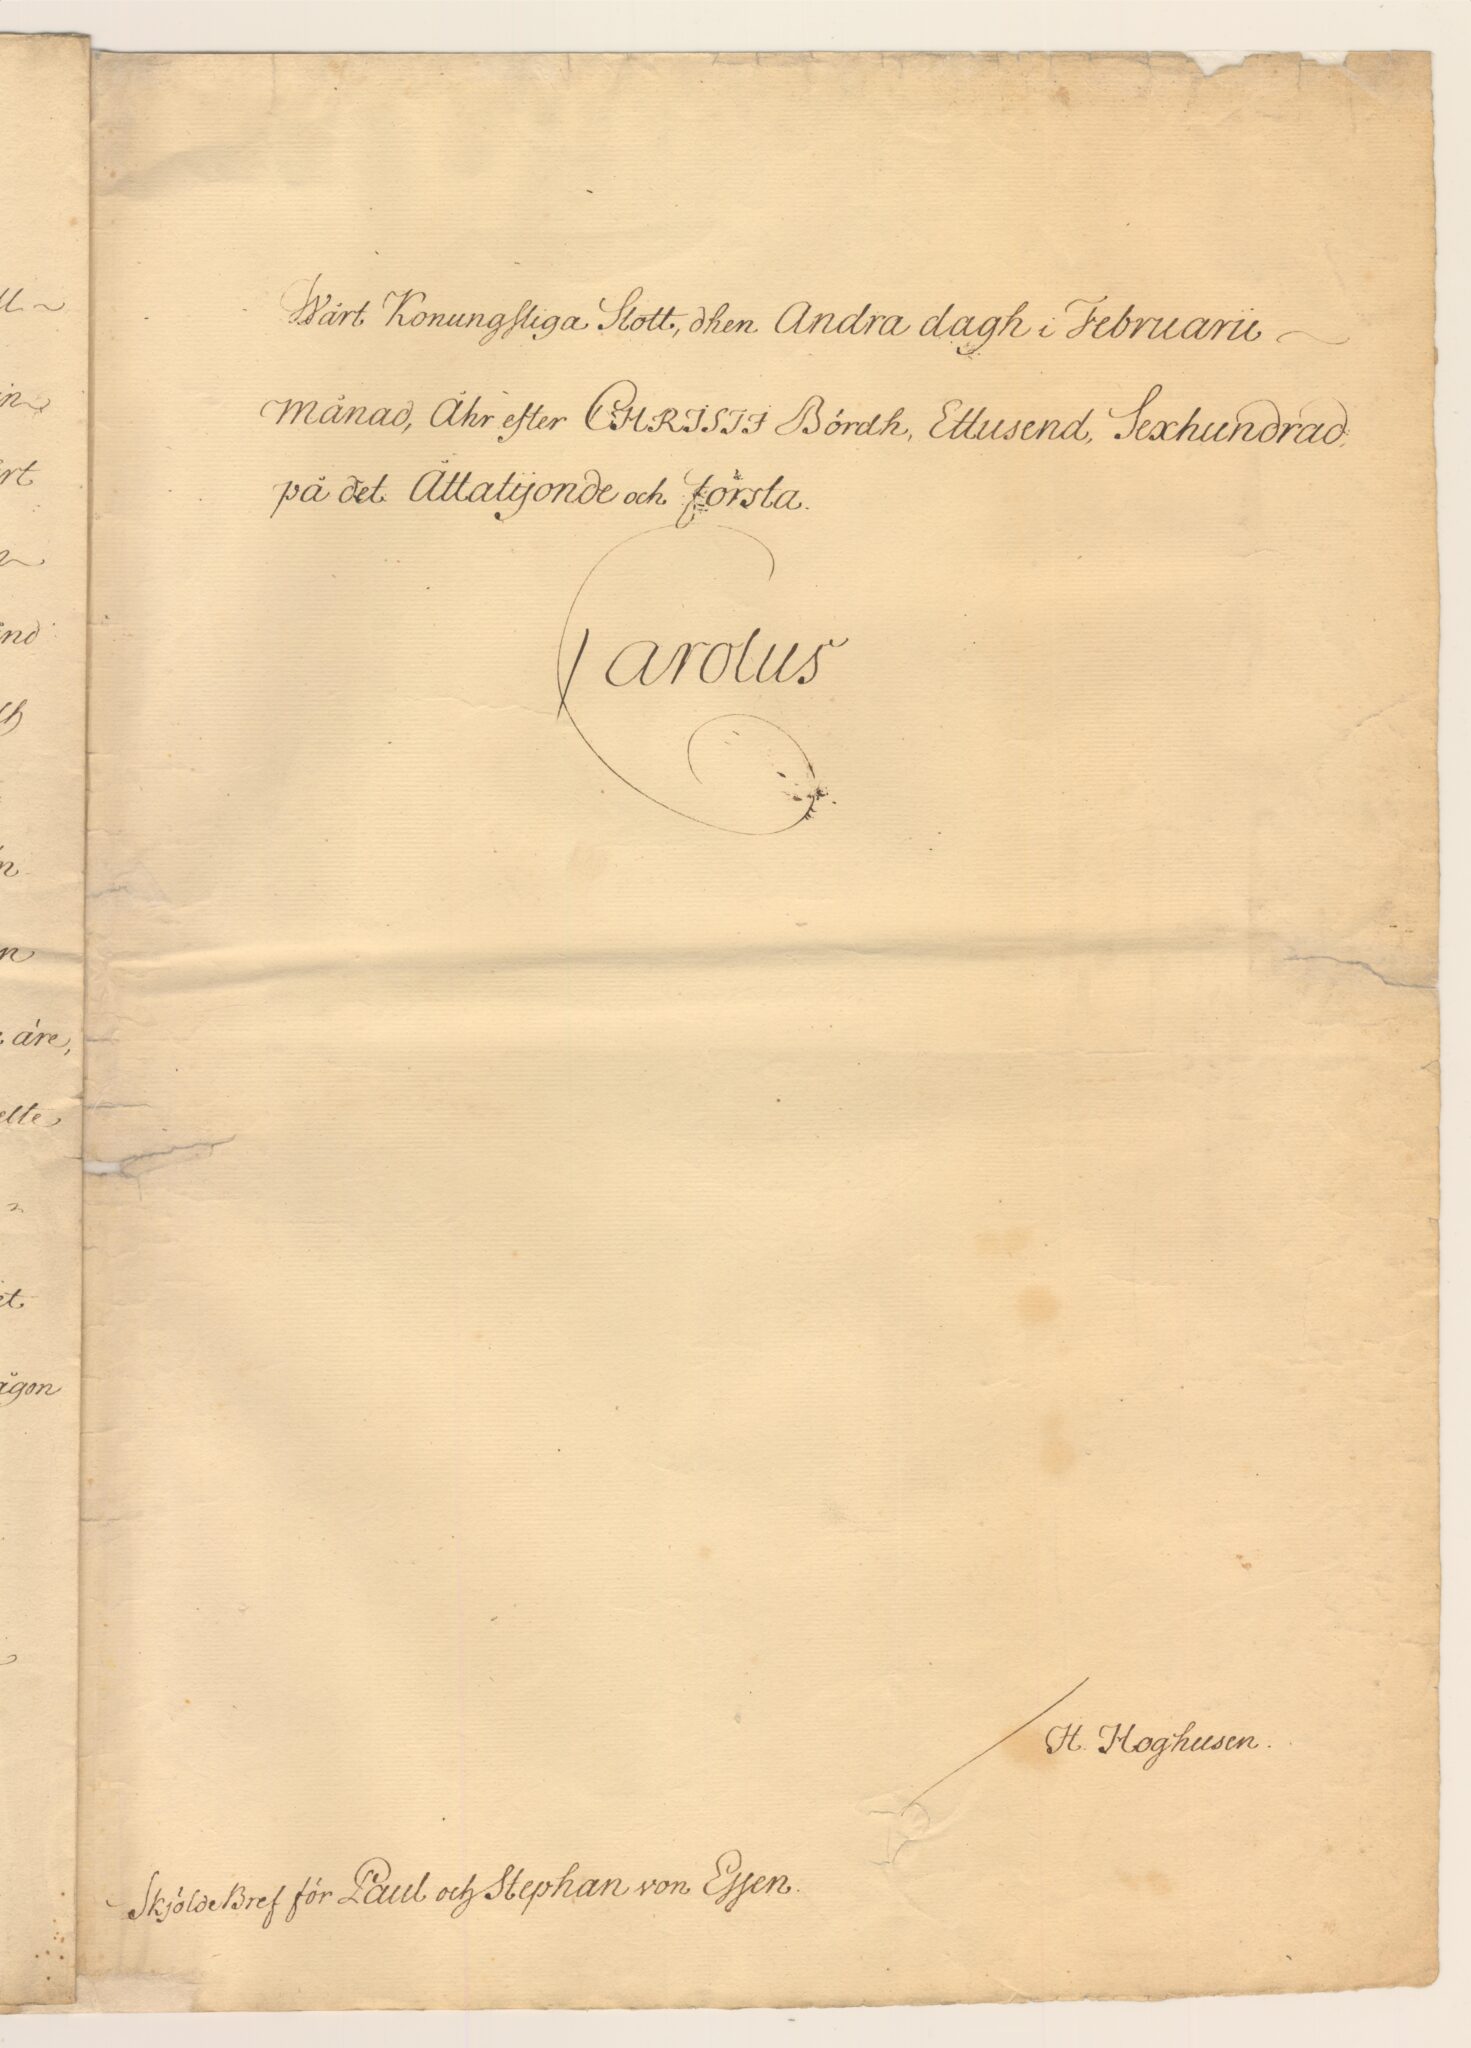 Wårt Konungsliga Slott, dhen Andra dagh i Februarii
månad, Åhr efter CHRISTI Bördh, Ettusend, Sexhundrad
på det Åttatijonde och första.
Carolus
H. Hoghusen.
Skjölde Bref för Paul och Stephan von Essen.
åre,
ågon